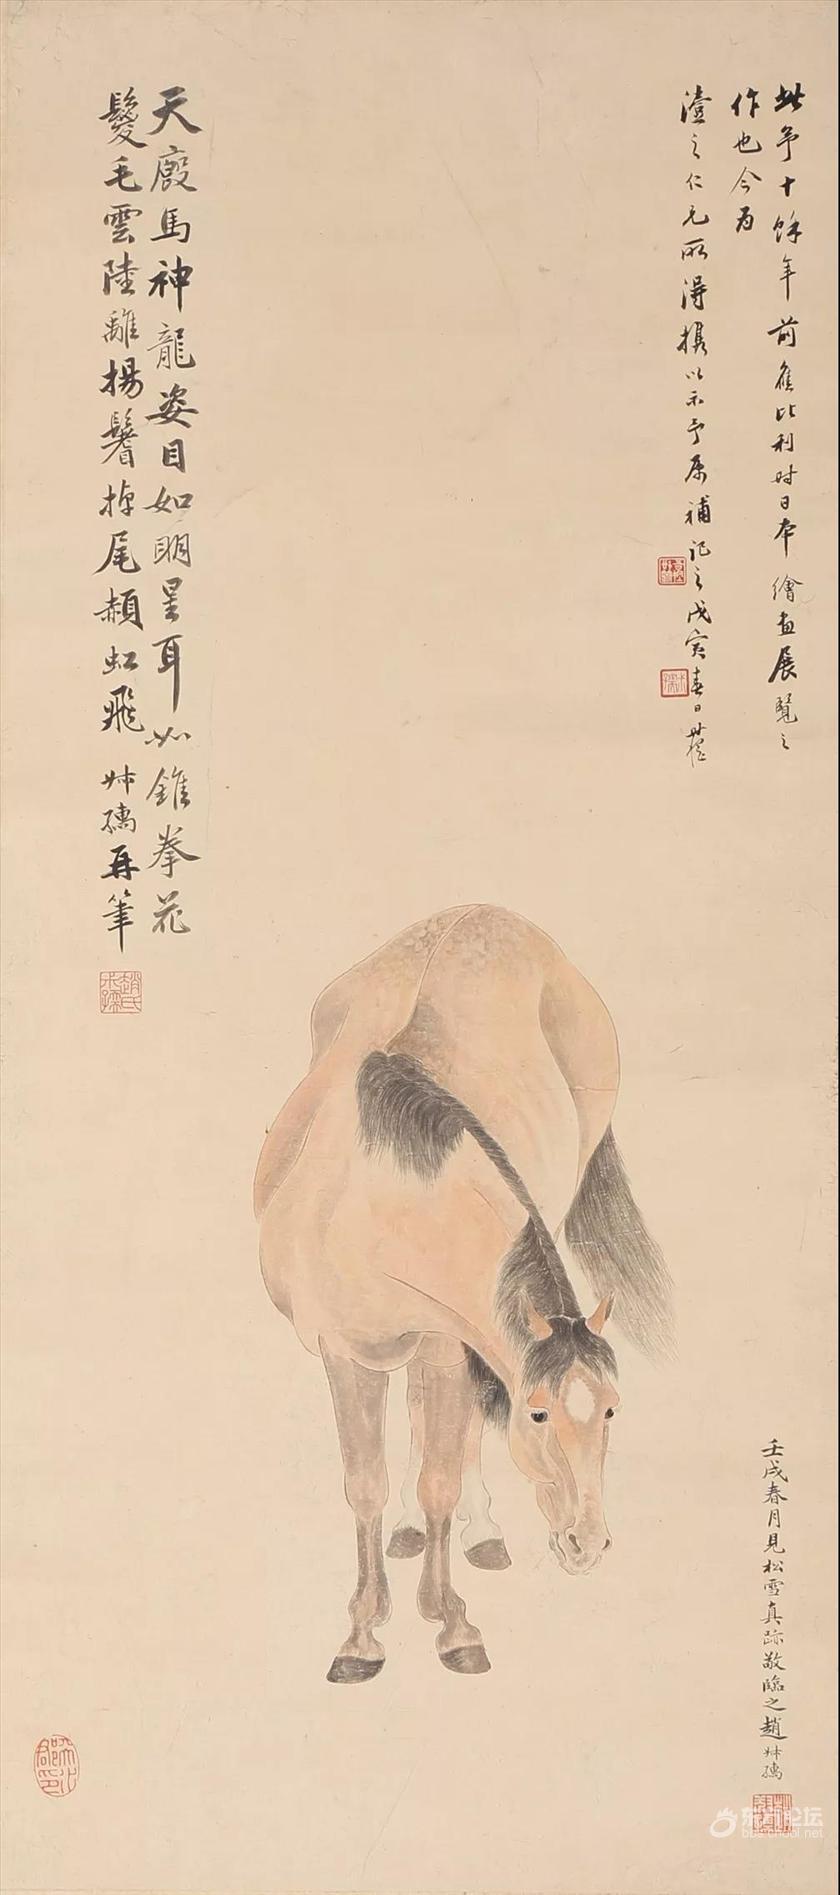 此予十餘年前應比利时日本繪畫展覽之
作也今為
澧之仁兄所得携以示予属補記之戊寅春日
天廄馬神龍姿目如明星耳如錐拳花
鬉毛雲陸離揚鬐掉尾頳虹飛 尗孺再筆
壬戌春月見松雪真跡敬臨之趙尗孺
趙氏尗孺
东方论坛